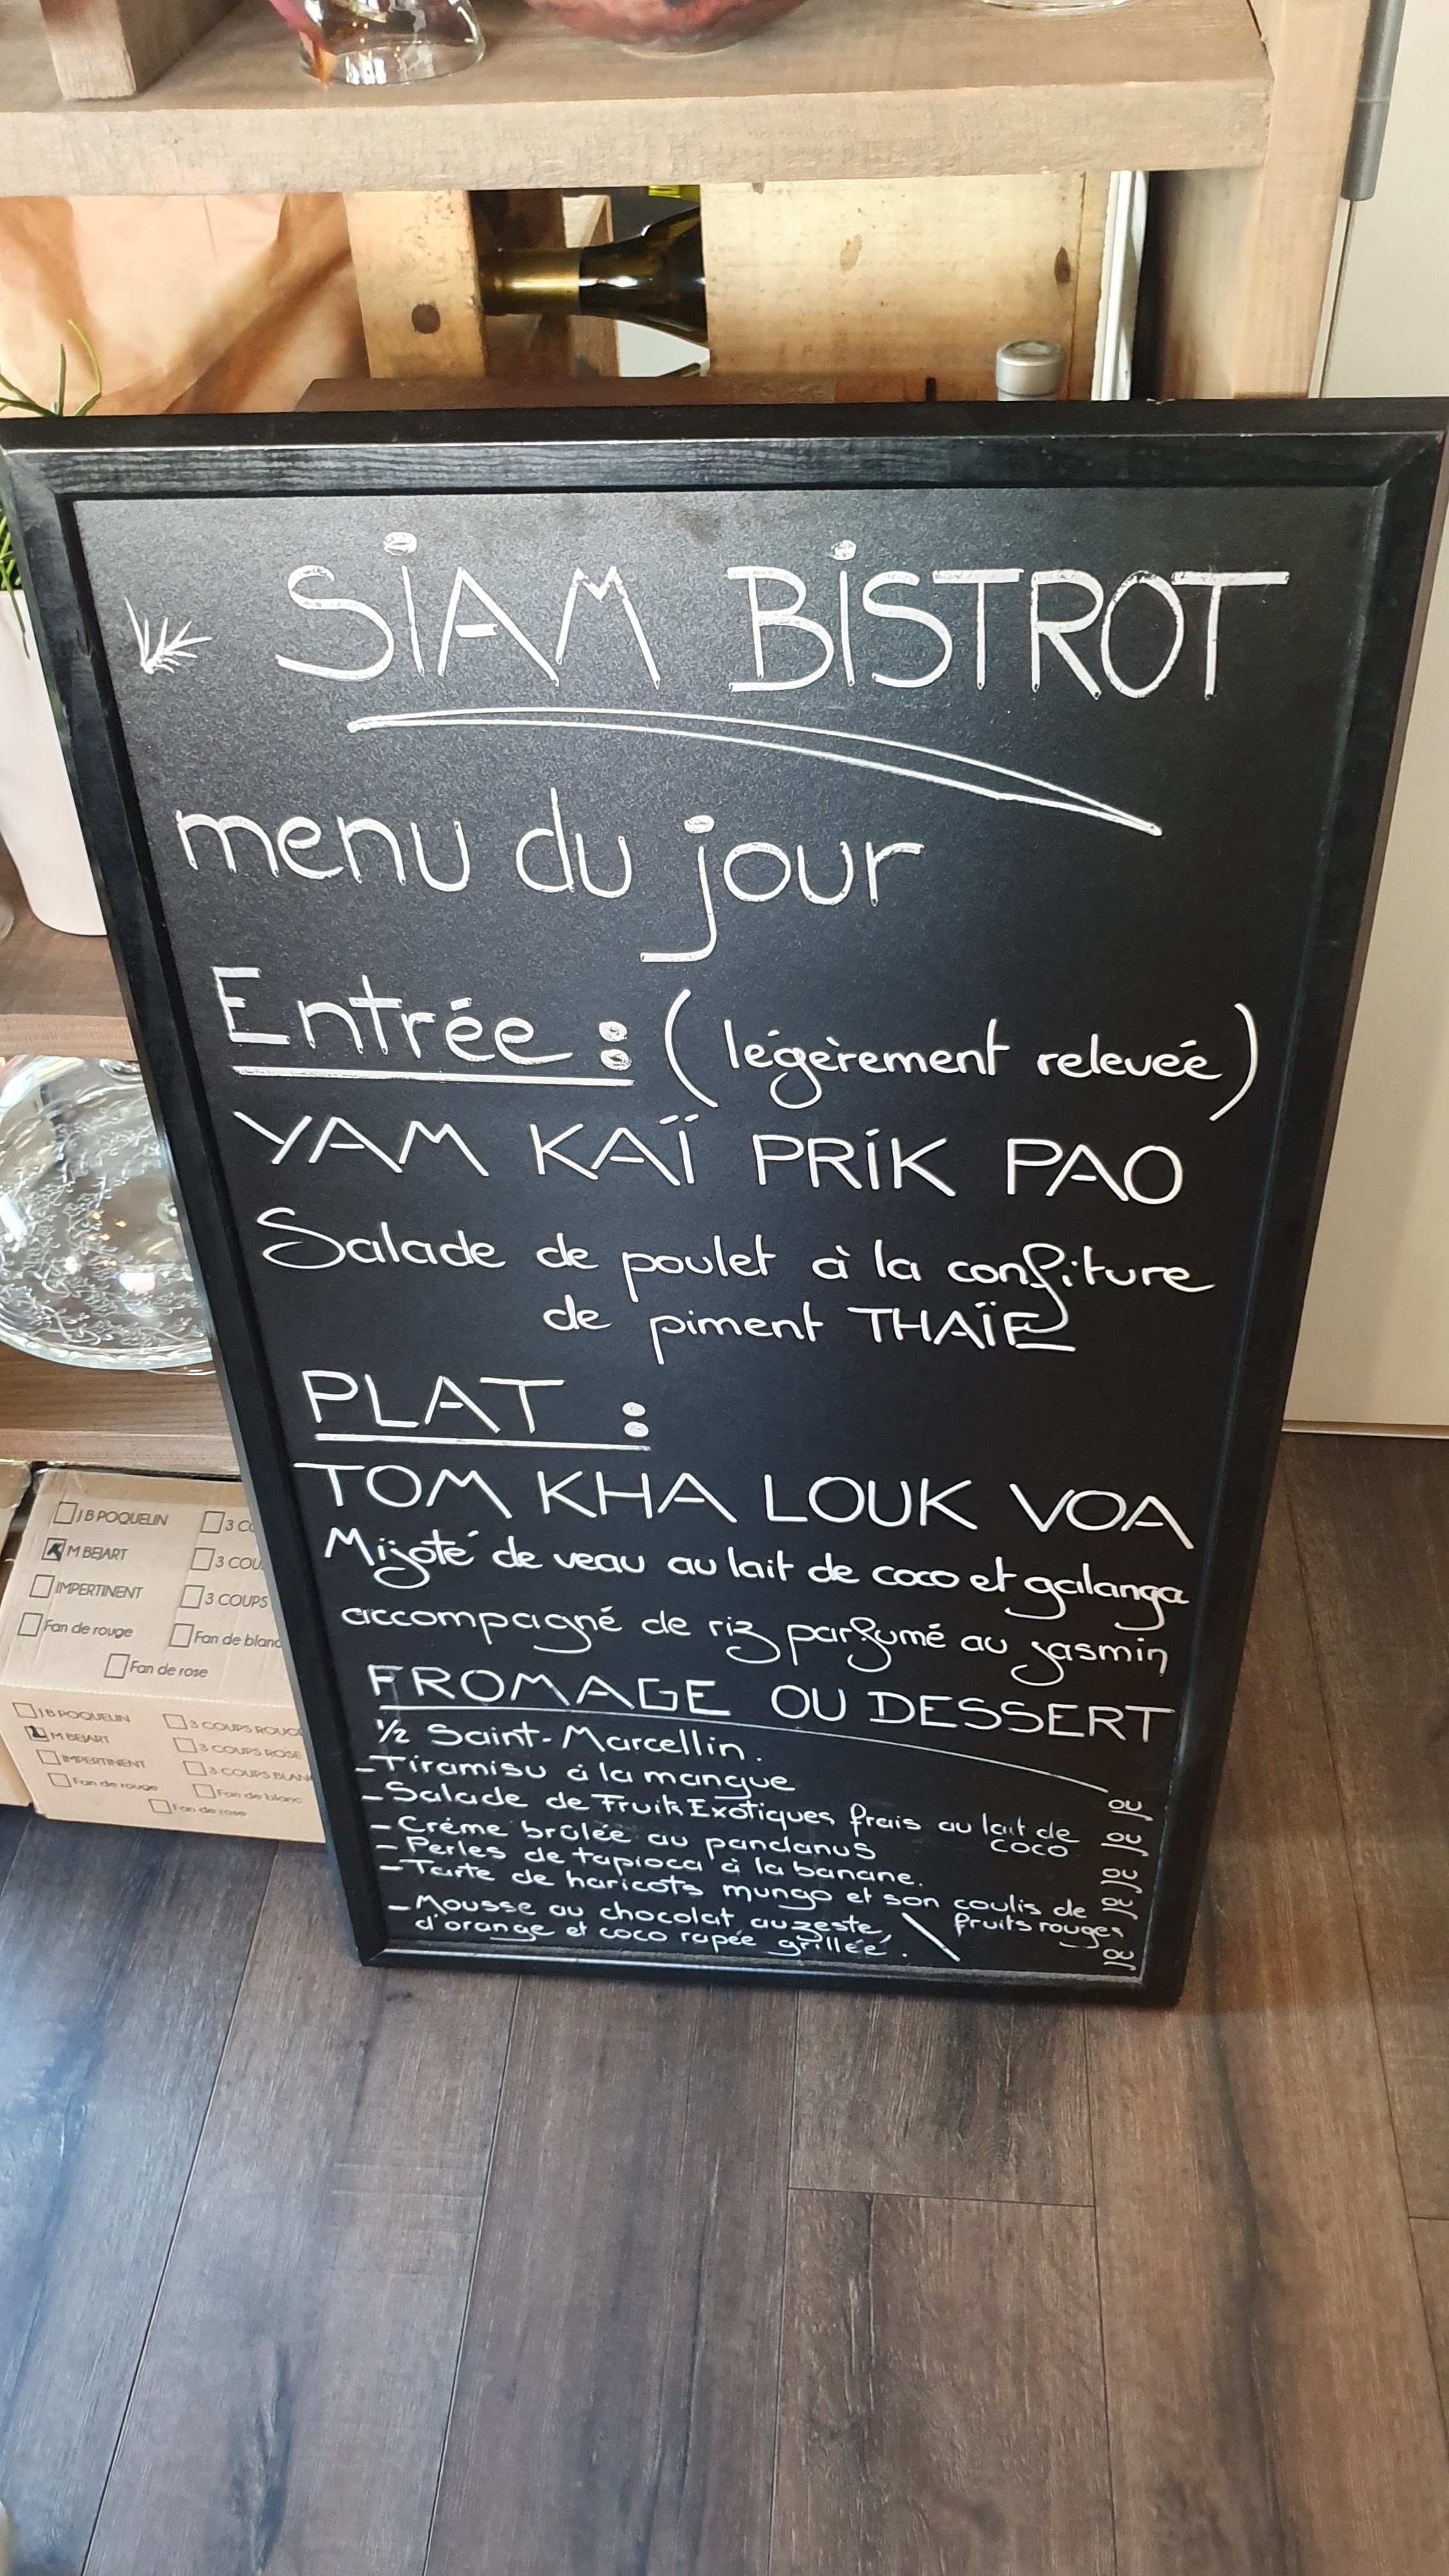 SIAM BISTROT
menu du jour
Entrée : (légèrement relevée)
YAM KAÏ PRIK PAO
Salade de poulet à la confiture
de piment THAÏE
PLAT :
TOM KHA LOUK VOA
Mijoté de veau au lait de coco et galanga
accompagné de riz parfumé au jasmin
FROMAGE OU DESSERT
1/2 Saint-Marcellin.
-Tiramisu à la mangue ou
-Salade de Fruits Exotiques frais au lait de
coco ou
-Crème brûlée au pandanus
-Perles de tapioca à la banane. ou
-Tarte de haricots mungo et son coulis de ou
fruits rouges
-Mousse au chocolat au zeste,
d'orange et coco rapée grillée. ou
J B POQUELIN 3 CO
M BEJART 3 COU
IMPERTINENT 3 COUPS
Fan de rouge Fan de blanc
Fan de rose
J B POQUELIN 3 COUPS ROUGE
M BEJART 3 COUPS ROSE
IMPERTINENT 3 COUPS BLAN
Fan de rouge Fan de blanc
Fan de rose